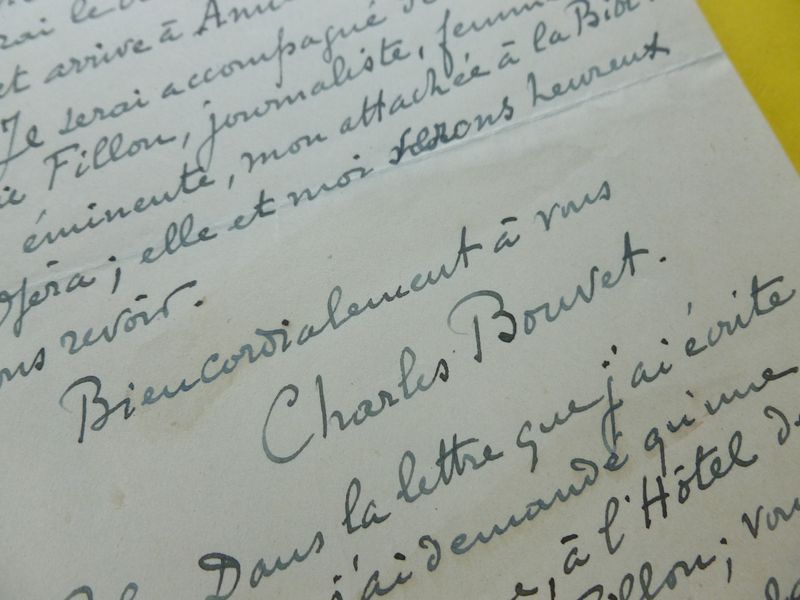 rai le
et arrive à
Je serai accompagné de
Fillon, journaliste, femme
éminente, mon attachée à la Bibl.
Opéra ; elle et moi serons heureux
revoir.
Bien cordialement à vous
Charles Bouvet.
Dans la lettre que j'ai écrite
j'ai demandé qu'une
, à l'Hôtel de
Fillon ; vou